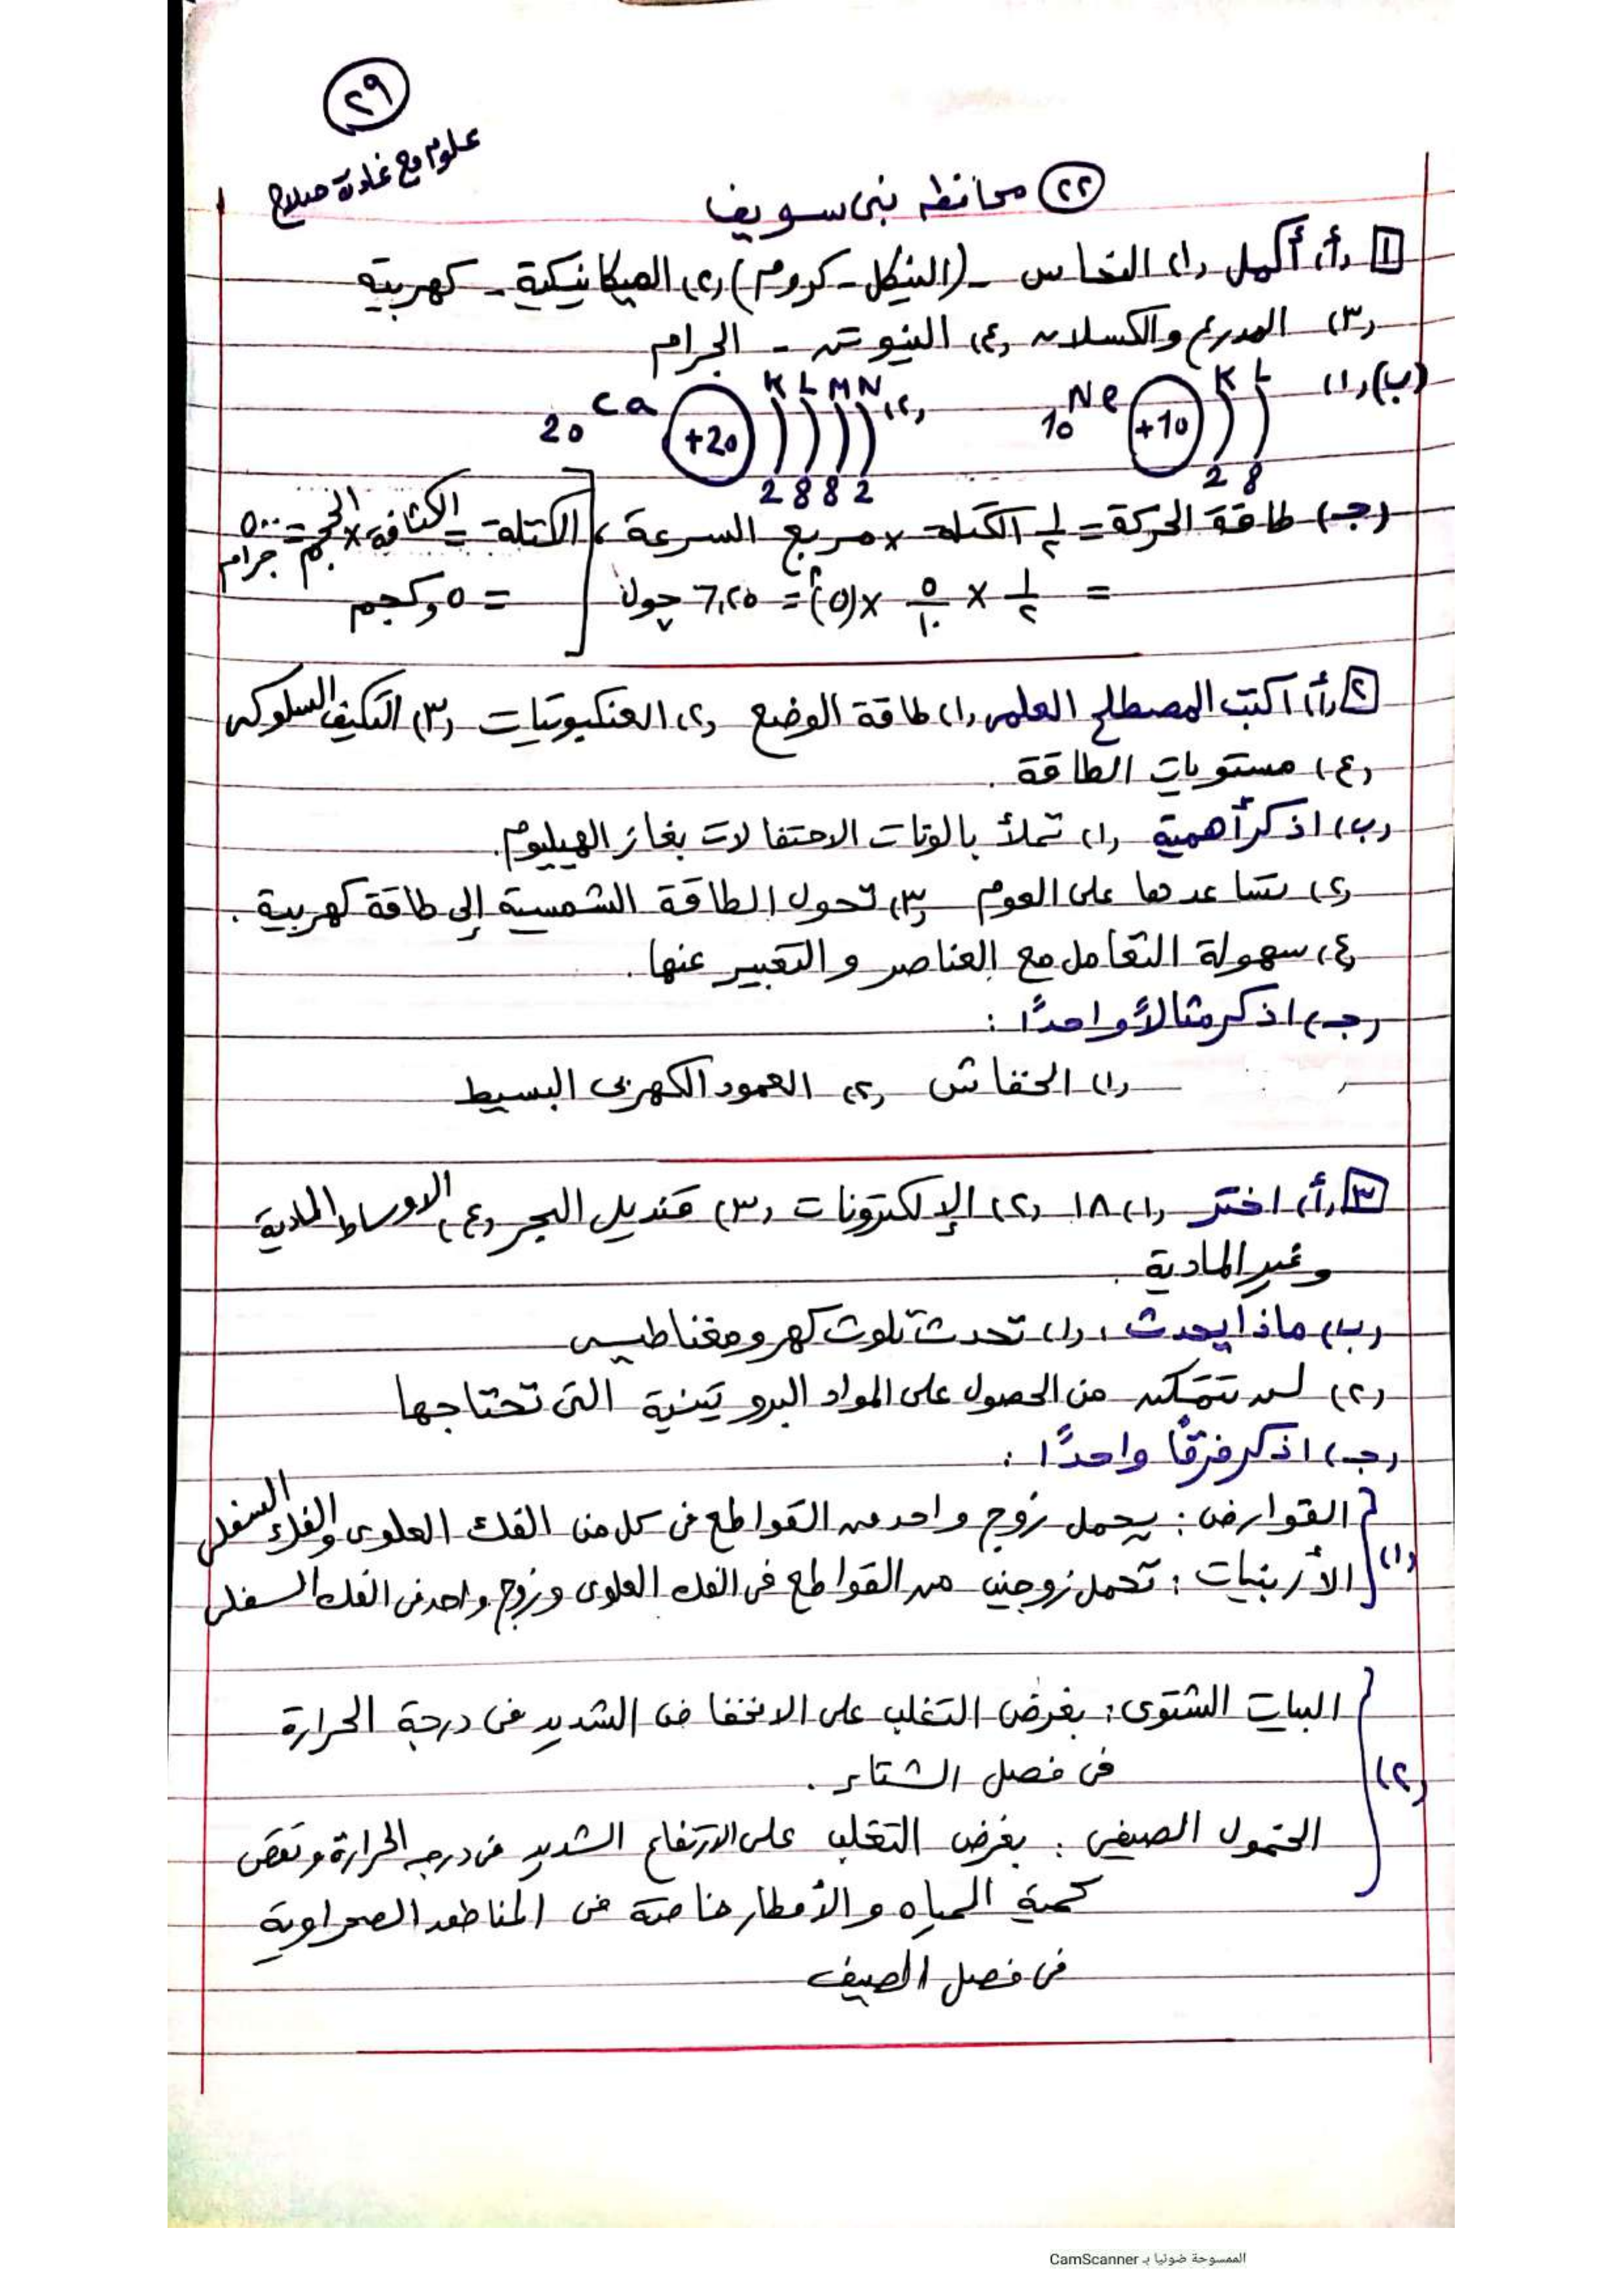 ٢٩
علوم مع غادة صلاح
(٢٢) محافظه بنى سويف
[١] (أ) أكمل (١) النحاس - (النيكل - كروم) (٢) الميكانيكية - كهربية
(٣) المدرع والكسلان (٤) النيوتن - الجرام
(ب) (١) 10Ne +10 K L 2 8 (٢) 20Ca +20 K L M N 2 8 8 2
(جـ) طاقة الحركة = ١/٢ الكتلة × مربع السرعة ، الكتلة = الكثافة × الحجم = ٥٠٠ جرام
= ١/٢ × ٥/١٠ × (٥)٢ = ٦,٢٥ جول = ٥,٠ كجم
[٢] (أ) اكتب المصطلح العلمى (١) طاقة الوضع (٢) العنكبوتيات (٣) التكيف السلوكى
(٤) مستويات الطاقة .
(ب) اذكر أهمية (١) تملأ بالونات الاحتفالات بغاز الهيليوم .
(٢) تساعدها على العوم (٣) تحول الطاقة الشمسية إلى طاقة كهربية .
(٤) سهولة التعامل مع العناصر والتعبير عنها .
(جـ) اذكر مثالاً واحدًا :
(١) الخفاش (٢) العمود الكهربى البسيط
[٣] (أ) اختر (١) ١٨ (٢) الإلكترونات (٣) قنديل البحر (٤) الاوساط المادية
وغير المادية .
(ب) ماذا يحدث : (١) تحدث تلوث كهرومغناطيسى
(٢) لن تتمكن من الحصول على المواد البروتينية التى تحتاجها
(جـ) اذكر فرقًا واحدًا :
(١) القوارض : يحمل زوج واحد من القواطع فى كل من الفك العلوى والفك السفلى
الأرنبيات : تحمل زوجين من القواطع فى الفك العلوى وزوج واحد فى الفك السفلى
(٢) البيات الشتوى : بغرض التغلب على الانخفاض الشديد فى درجة الحرارة
فى فصل الشتاء .
الخمول الصيفى : بغرض التغلب على الارتفاع الشديد فى درجه الحرارة ونقص
كمية المياه والأمطار خاصة فى المناطق الصحراوية
فى فصل الصيف
الممسوحة ضوئيا بـ CamScanner